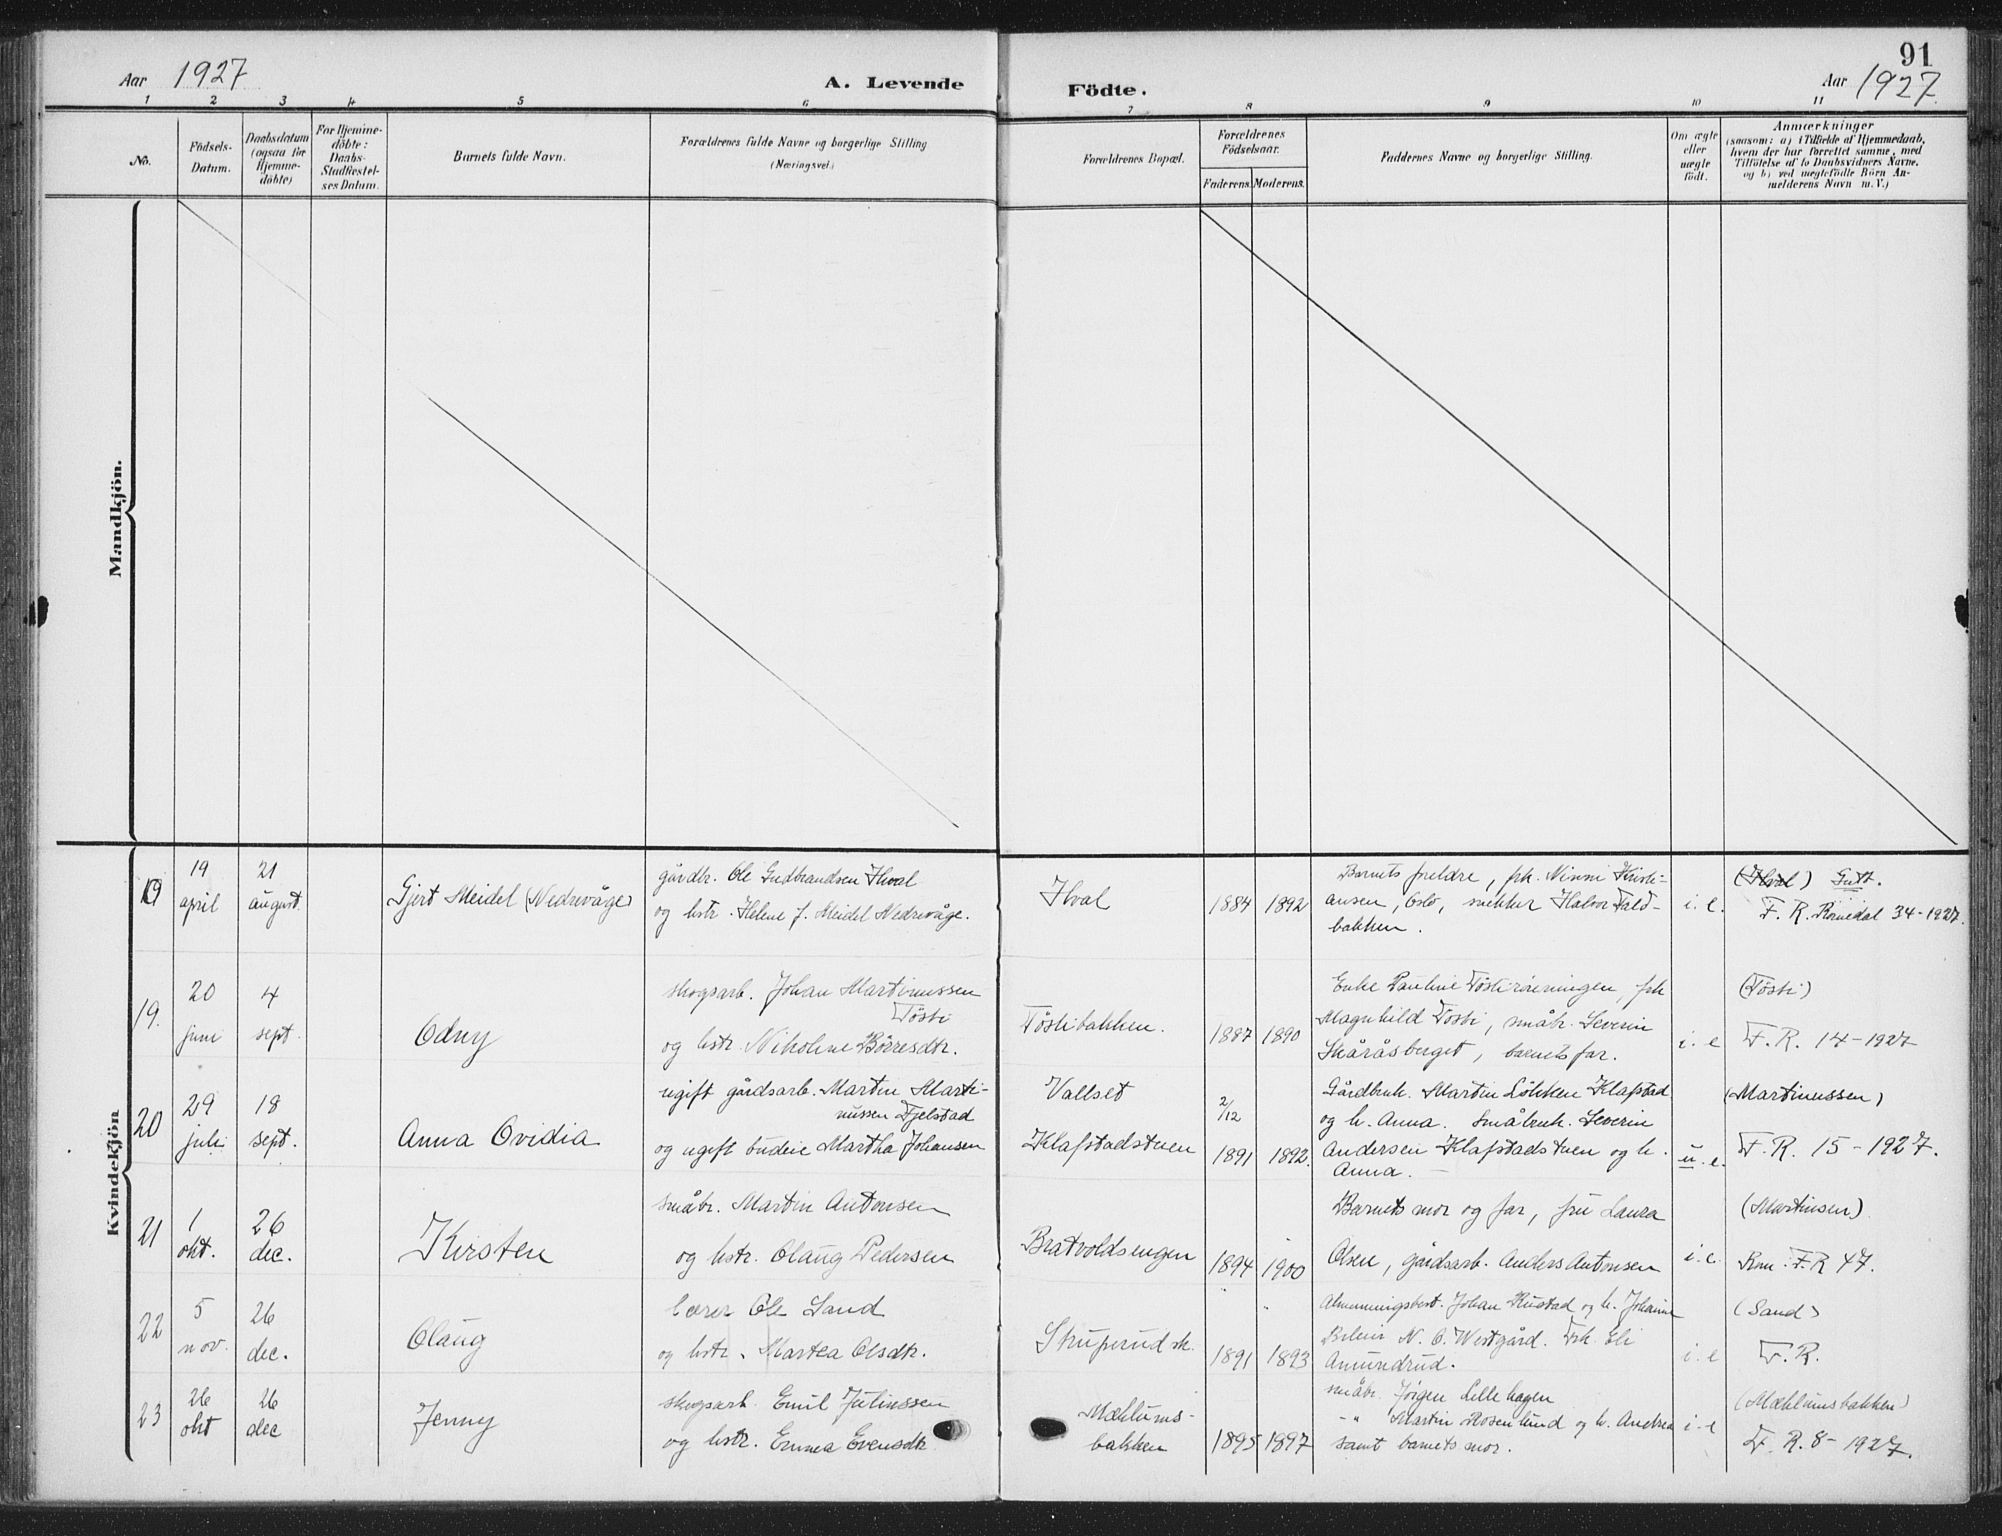 91
Aar 1927 A. Levende Födte. Aar 1927
1 2 3 4 5 6 7 8 9 10 11
No.
Födsels-
Datum.
Daabsdatum
(ogsaa for
Hjemme-
döbte)
For Hjemme-
döbte:
Daabs-
Stadfæstel-
ses Datum.
Barnets fulde Navn.
Forældrenes fulde Navne og borgerlige Stilling
(Næringsvei.)
Forældrenes Bopæl.
Forældrenes
Födselsaar.
Faderens. Moderens.
Faddernes Navne og borgerlige Stilling.
Om ægte
eller
uægte
födt.
Anmærkninger
(saasom: a) i Tilfælde af Hjemmedaab,
hvem der har forrettet samme, med
Tilföielse af to Daabsvidners Navne.
og b) ved uægtefödte Börn An-
melderens Navn m. V.)
Mandkjön.
Kvindekjön
19 april
21 august
Gjert Meidel (Nedrevåge)
gårdbr. Ole Gudbrandsen Hval
og hstr. Helene f. Meidel Nedrevåge.
Hval
1884 1892
Barnets foreldre, frk. Ninni Kristi-
ansen, Oslo, snekker Halvor Fald-
bakken.
i. e.
(Hval) Gutt.
F. R. Romedal 34-1927.
19.
20 juni
4 sept.
Odny
skogsarb. Johan Martinussen
Tösti
og hstr. Nikoline Börresdtr.
Töstibakken.
1887 1890
Enke Pauline Töstirönningen, frk
Magnhild Tosti, småbr. Severin
Skåråsberget, barnets far.
i. e
(Tösti)
F. R. 14-1927
20
29 juli
18 sept.
Anna Ovidia
ugift gårdsarb. Martin Marti-
nussen Fjelstad
og ugift budeie Martha Johansen
Vallset
Klafstadstuen
2/12
1891 1892.
Gårdbruk. Martin Løkken Klafstad
og h. Anna. Småbruk. Severin
Andersen Klafstadstuen og h.
Anna. —
u. e.
(Martinussen)
F. R. 15-1927.
21
1 okt.
26 dec.
Kirsten
småbr. Martin Antonsen
og hstr. Olaug Pedersen
Bratvoldsengen
1894 1900
Barnets mor og far, fru Laura
Olsen, gårdsarb. Anders Antonsen
i. e.
(Martinsen)
Rom. F. R 47.
22
5 nov.
26 dec.
Olaug
lærer Ole Sand
og hstr. Martea Olsdtr.
Struperud sk.
1891 1893
Almenningsbest. Johan Kustad og h. Johanne
N. O. Westgård. Frk. Eli
Amundrud.
i. e
(Sand)
F. R.
23
26 okt
26 dec
Jenny
skogsarb. Emil Juliussen
og hstr. Emma Evensdtr.
Mæhlums-
bakken
1895 1897
småbr. Jörgen Lillehagen
-"- Martin Rosenlund og h. Andrea
samt barnets mor.
i-e
(Mæhlumsbakken)
F. R. 8-1927.